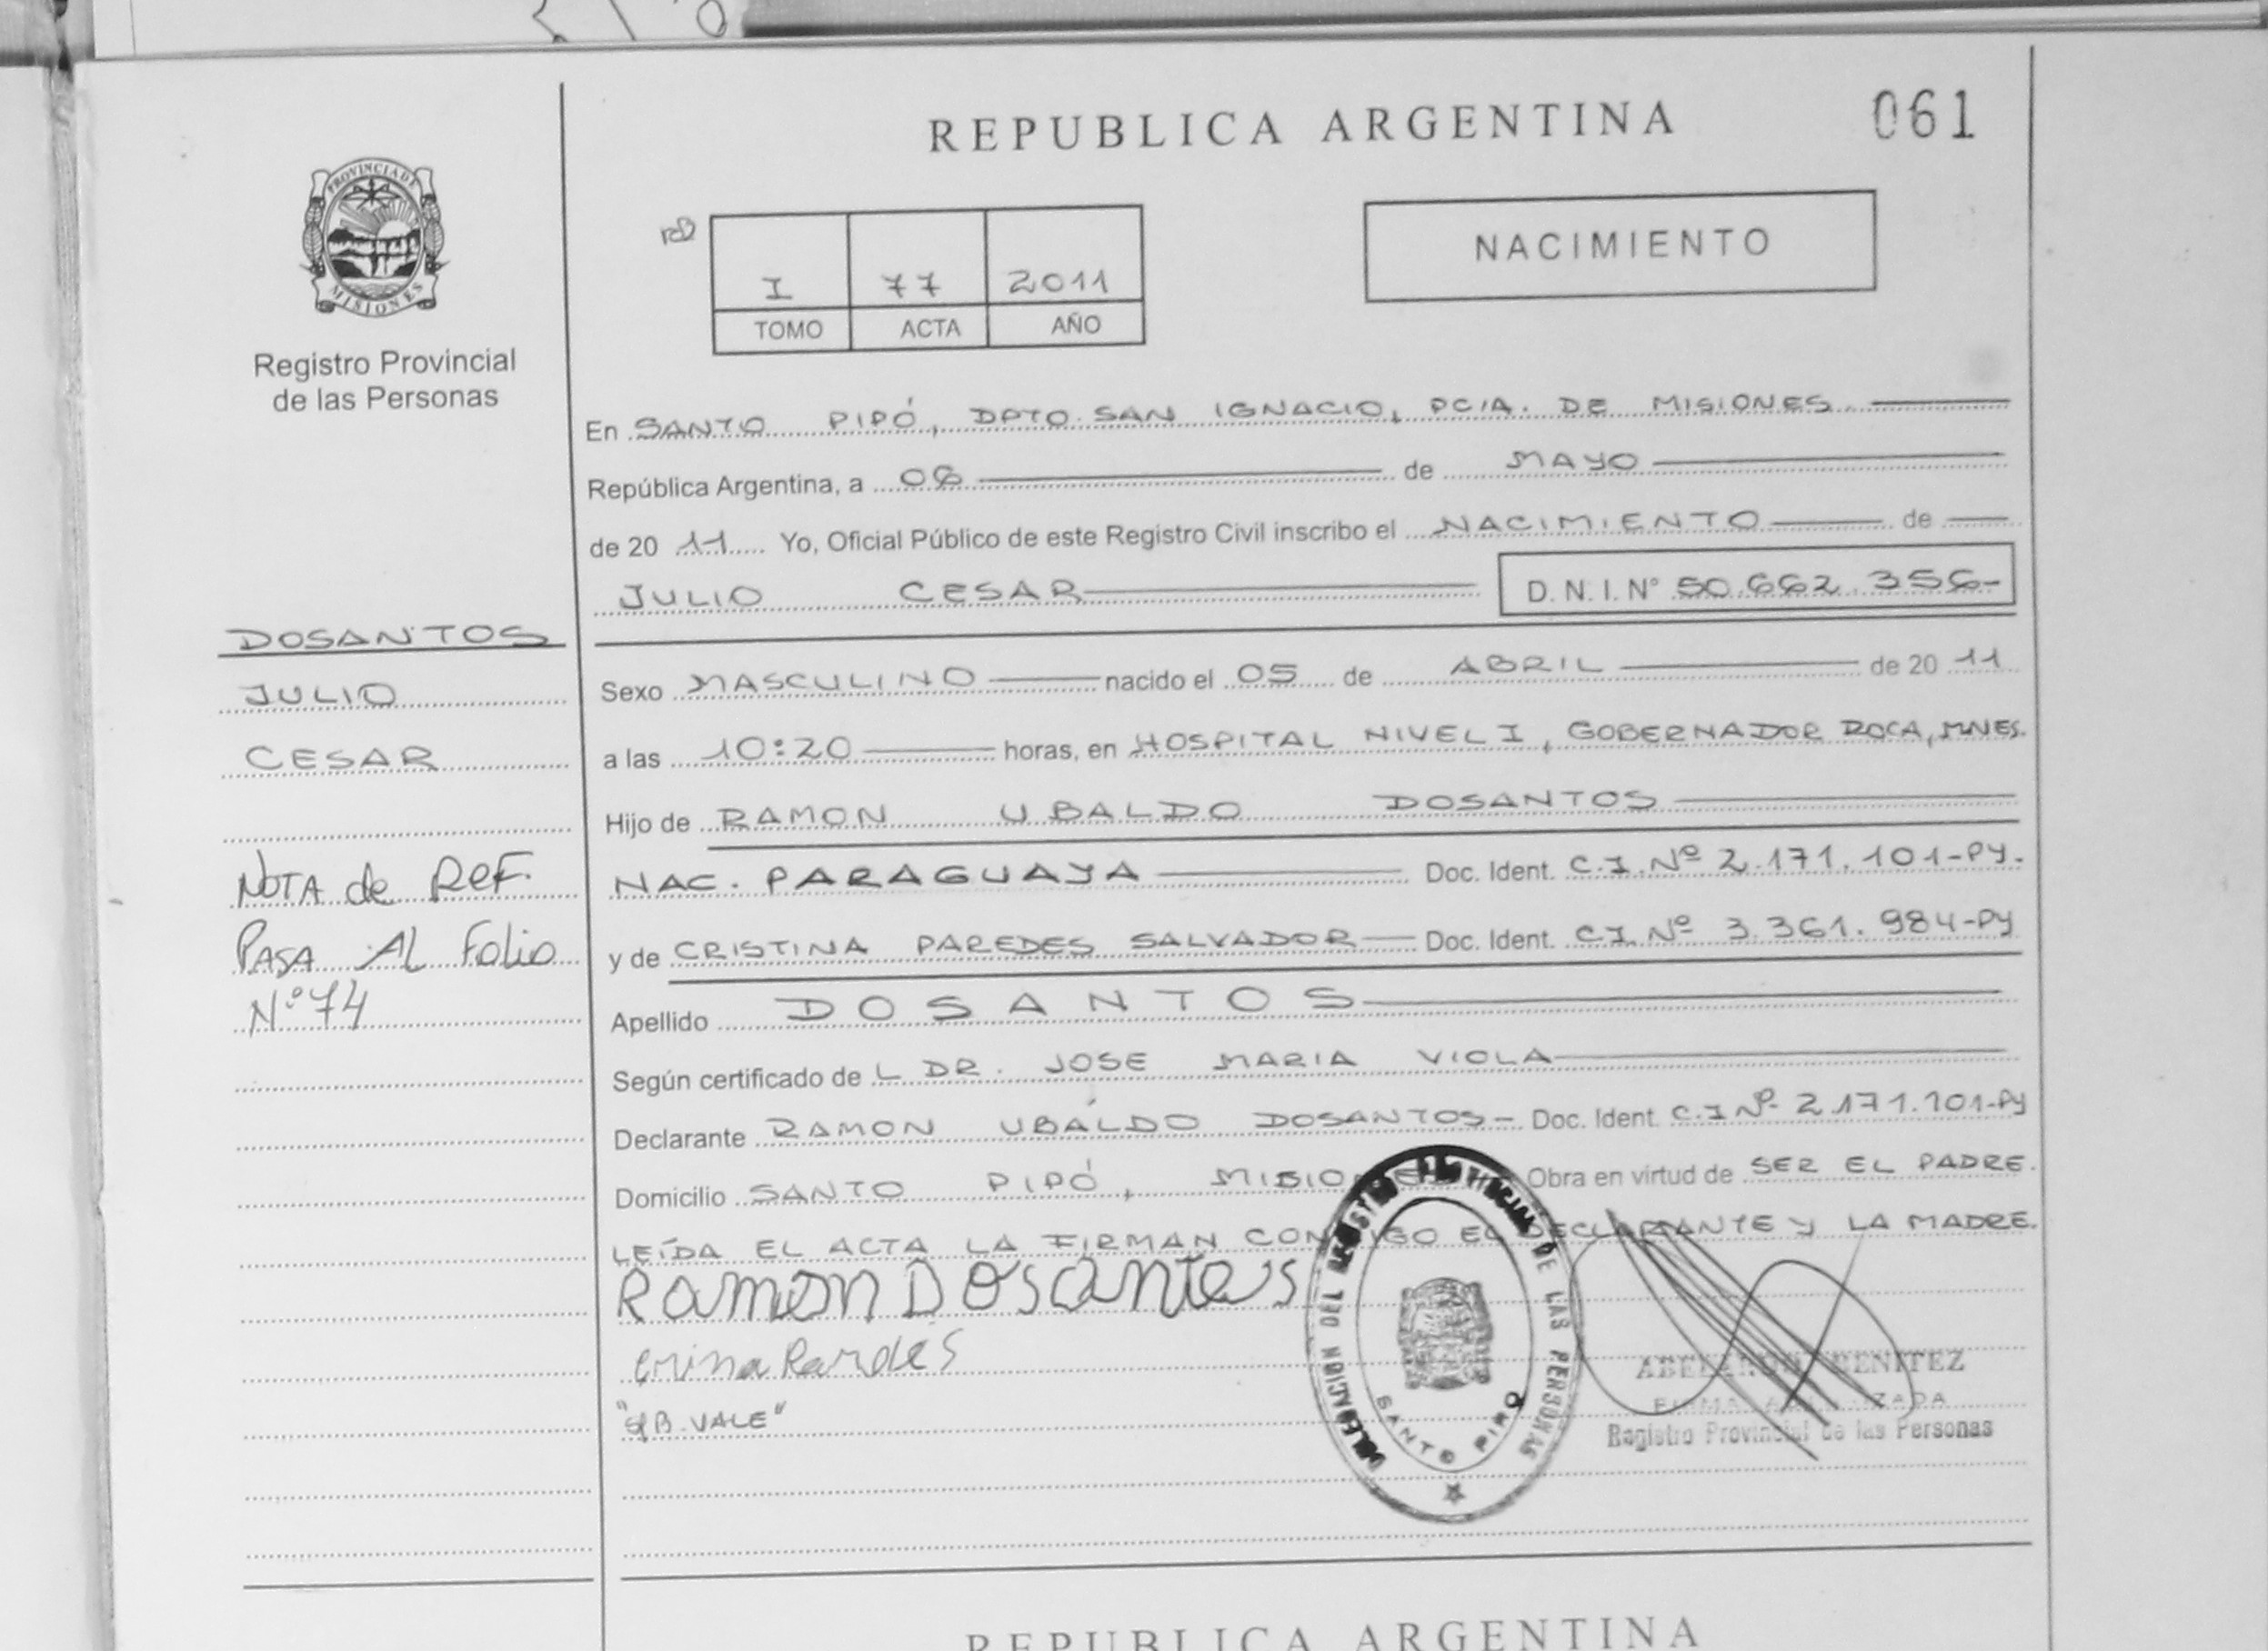 REPUBLICA ARGENTINA
061
PROVINCIA DE
MISIONES
Registro Provincial
de las Personas
I 77 2011
TOMO ACTA AÑO
NACIMIENTO
En SANTO PIPÓ, DPTO. SAN IGNACIO, PCIA. DE MISIONES.
República Argentina, a 06 de MAYO
de 20 11 Yo, Oficial Público de este Registro Civil inscribo el NACIMIENTO de
JULIO CESAR D. N. I. N° 50.662.356-
DOSANTOS
JULIO
CESAR
NOTA de REF.
PASA AL Folio
N°74
Sexo MASCULINO nacido el 05 de ABRIL de 20 11
a las 10:20 horas, en HOSPITAL NIVEL I, GOBERNADOR ROCA, MNES.
Hijo de RAMON UBALDO DOSANTOS
NAC. PARAGUAYA Doc. Ident. C.I. Nº 2.171.101-PY.
y de CRISTINA PAREDES SALVADOR Doc. Ident. C.I. Nº 3.361.984-PY
Apellido DOSANTOS
Según certificado de L DR. JOSE MARIA VIOLA
Declarante RAMON UBALDO DOSANTOS- Doc. Ident. C.I Nº 2.171.101-PY
Domicilio SANTO PIPÓ, MISIONES Obra en virtud de SER EL PADRE.
LEÍDA EL ACTA LA FIRMAN CONMIGO EL DECLARANTE Y LA MADRE.
Ramon Dosantes
"S/B. VALE"
DELEGACION DEL REGISTRO PROVINCIAL DE LAS PERSONAS
SANTO PIPO
BENITEZ
Registro Provincial de las Personas
REPUBLICA ARGENTINA